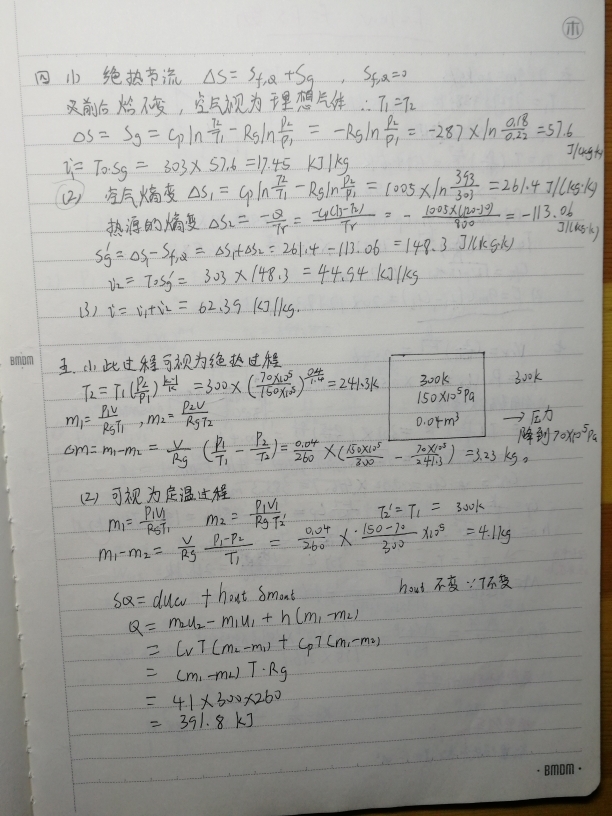 木
四 (1) 绝热节流 ΔS = Sf,Q + Sg , Sf,Q=0
又前后焓不变, 空气视为理想气体 ∴ T1=T2
ΔS = Sg = Cp ln T2/T1 - Rg ln P2/P1 = -Rg ln P2/P1 = -287×ln 0.18/0.22 = 57.6 J/(kg·k)
i1 = T0·Sg = 303 × 57.6 = 17.45 kJ/kg
(2) 空气熵变 ΔS1 = Cp ln T2/T1 - Rg ln P2/P1 = 1005 × ln 393/303 = 261.4 J/(kg·k)
热源的熵变 ΔS2 = -Q/Tr = -Cp(T3-T2)/Tr = - 1005×(120-30)/800 = -113.06 J/(kg·k)
Sg' = ΔS1 - Sf,Q = ΔS1+ΔS2 = 261.4 - 113.06 = 148.3 J/(kg·k)
i2 = T0Sg' = 303 × 148.3 = 44.94 kJ/kg
(3) i = i1+i2 = 62.39 kJ/kg.
BMDM
五. (1) 此过程可视为绝热过程
T2 = T1 (P2/P1)^(k-1/k) = 300 × (70×10^5/150×10^5)^(0.4/1.4) = 241.3k
m1 = P1V/RgT1 , m2 = P2V/RgT2
Δm = m1-m2 = V/Rg (P1/T1 - P2/T2) = 0.04/260 × (150×10^5/300 - 70×10^5/241.3) = 3.23 kg。
300k
150×10^5 Pa
0.04m³
300k
→ 压力
降到 70×10^5 Pa
(2) 可视为定温过程
m1 = P1V1/RgT1 m2 = P1V1/RgT2' T2' = T1 = 300k
m1-m2 = V/Rg P1-P2/T1 = 0.04/260 × 150-70/300 ×10^5 = 4.1kg
δQ = ducv + hout δmout hout 不变 ∵ T不变
Q = m2u2 - m1u1 + h(m1-m2)
= CvT(m2-m1) + CpT(m1-m2)
= (m1-m2) T·Rg
= 4.1 × 300 × 260
= 391.8 kJ
·BMDM·